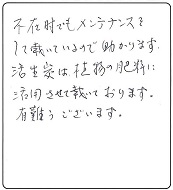 不在時でもメンテナンスを
して戴いているので助かります.
活生炭は、植物の肥料に
活用させて戴いております。
有難うございます。